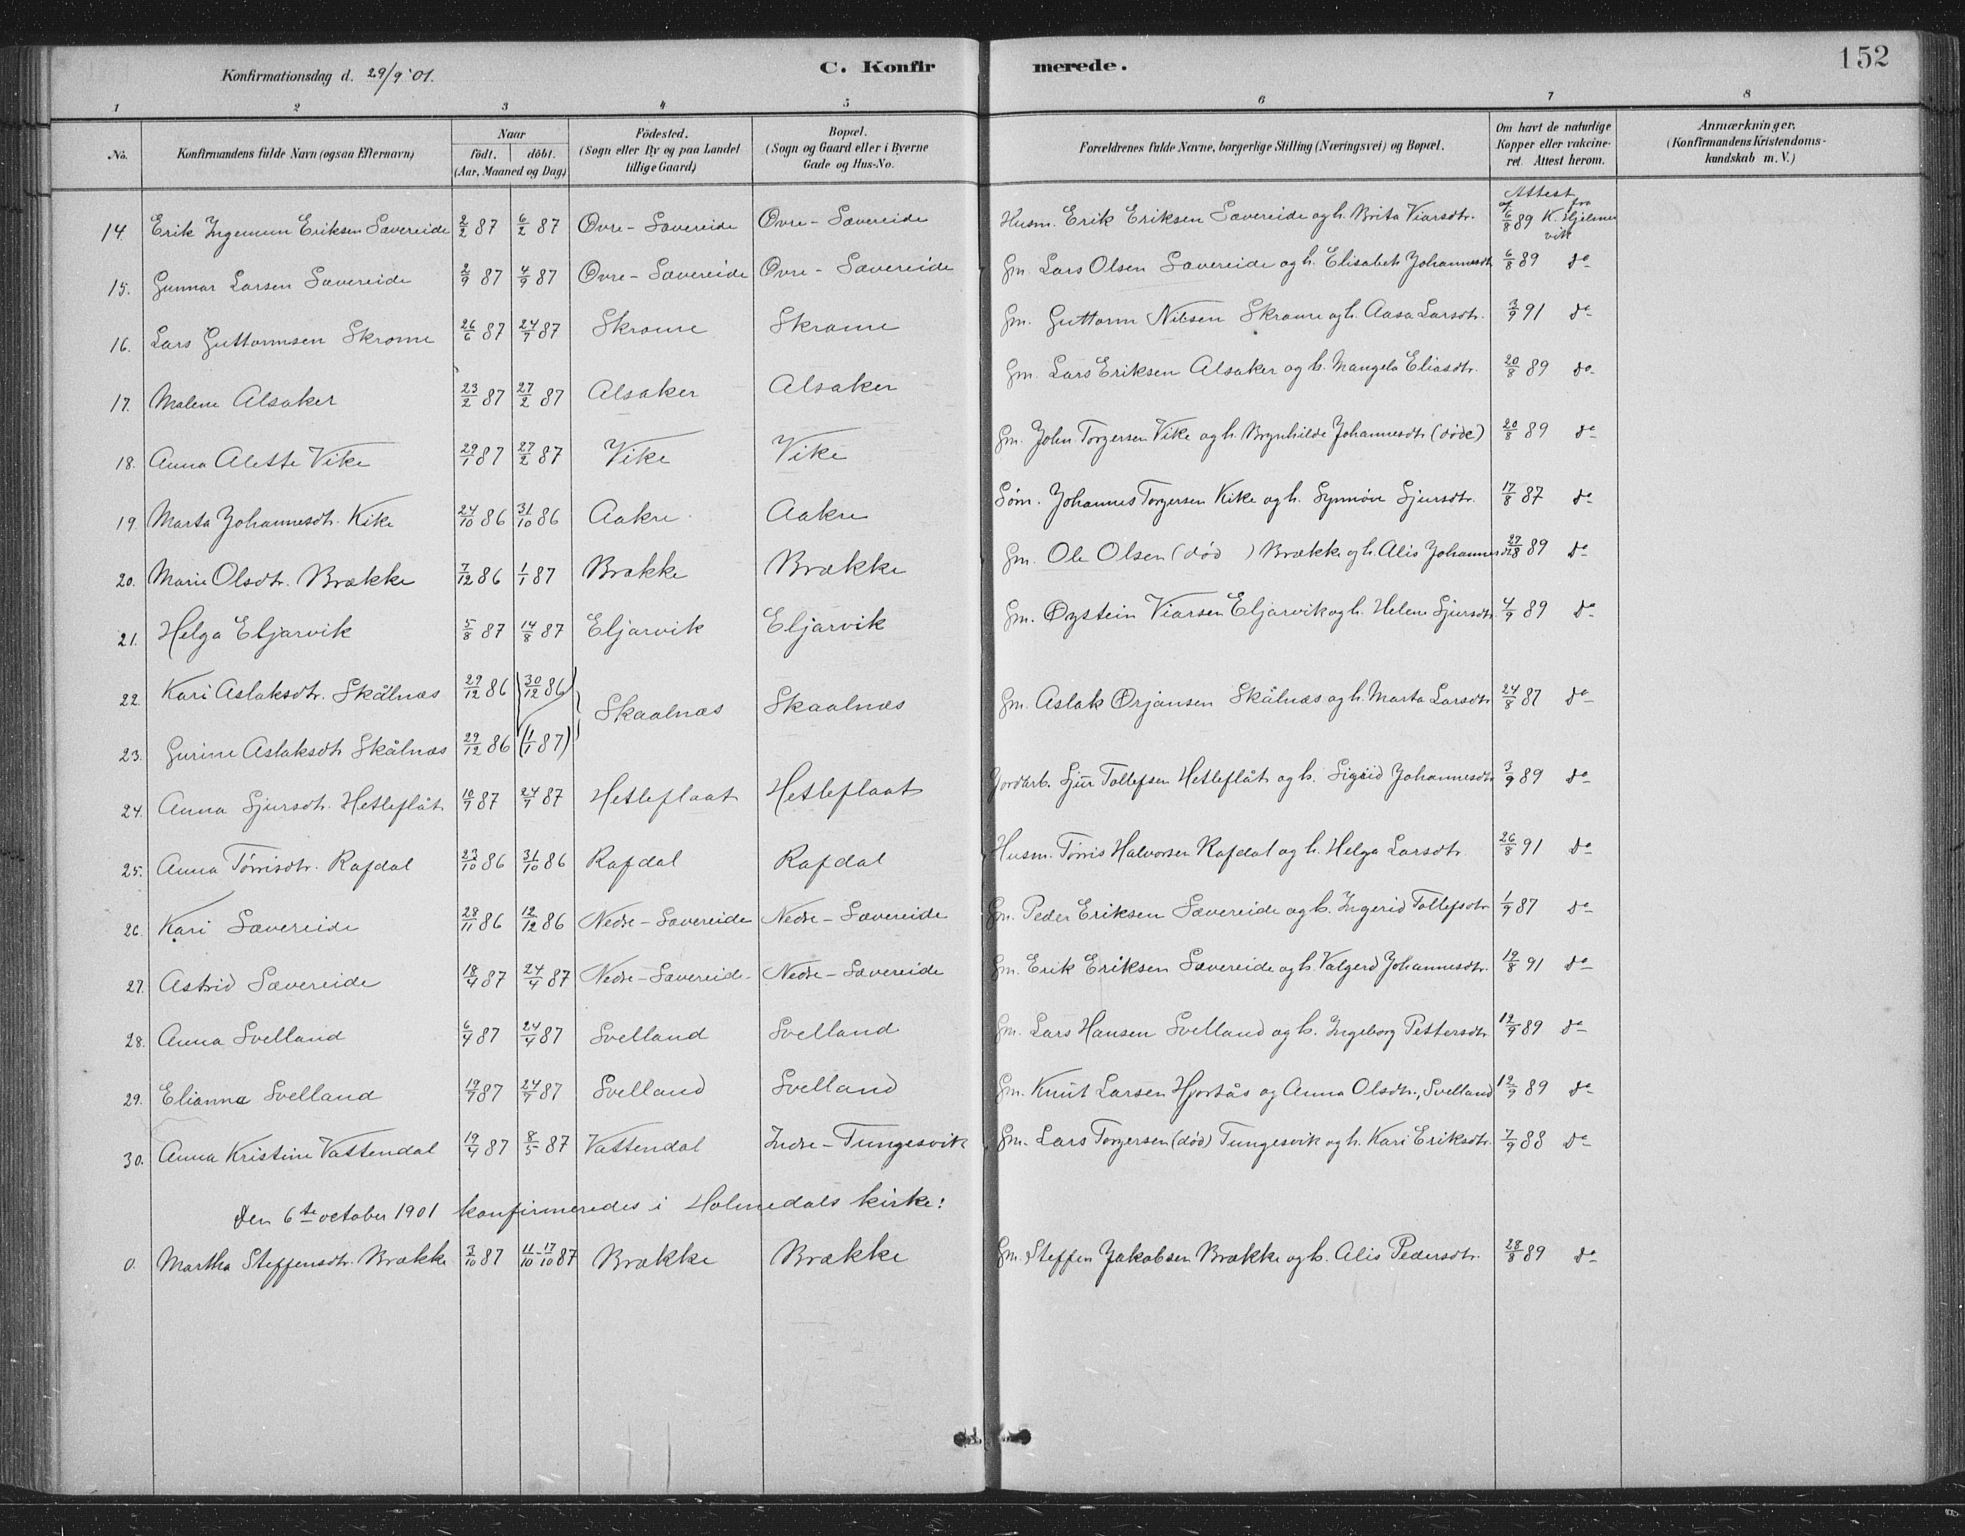 152
Konfirmationsdag d. 29/9 '01.
C. Konfirmerede.
1 2 3 4 5 6 7 8
No. | Konfirmandens fulde Navn (ogsaa Efternavn) | Naar födt. döbt. (Aar, Maaned og Dag) | Födested. (Sogn eller By og paa Landet tillige Gaard) | Bopæl. (Sogn og Gaard eller i Byerne Gade og Hus-No. | Forældrenes fulde Navne, borgerlige Stilling (Næringsvei) og Bopæl. | Om havt de naturlige Kopper eller vakcineret. Attest herom. | Anmærkninger. (Konfirmandens Kristendomskundskab m. V.)
14. Erik Ingemun Eriksen Sævereide 2/2 87 6/2 87 Øvre-Sævereide Øvre-Sævereide Husm. Erik Eriksen Sævereide og h. Brita Viarsdtr. Attest af 6/8 89 fra K. Hjelmevik
15. Gunnar Larsen Sævereide 2/9 87 4/9 87 Øvre-Sævereide Øvre-Sævereide Gm. Lars Olsen Sævereide og h. Elisabeth Johannesdtr. 6/8 89 do
16. Lars Guttormsen Skrome 26/6 87 24/7 87 Skrome Skrome Gm. Guttorm Nilsen Skrome og h. Aasa Larsdtr. 3/9 91 do
17. Malene Alsaker 23/2 87 27/2 87 Alsaker Alsaker Gm. Lars Eriksen Alsaker og h. Mangela Eliasdtr. 20/8 89 do
18. Anna Alette Vike 29/1 87 27/2 87 Vike Vike Gm. John Torgersen Vike og h. Brynhilde Johannesdtr (døde) 20/8 89 do
19. Marta Johannesdtr. Kike 24/10 86 31/10 86 Aakre Aakre Søm. Johannes Torgersen Kike og h. Synnøve Sjursdtr. 17/8 87 do
20. Marie Olsdtr. Brække 7/12 86 1/1 87 Brække Brække Gm. Ole Olsen (død ) Brække og h. Alis Johannesdtr 27/8 89 do
21. Helga Eljarvik 5/8 87 14/8 87 Eljarvik Eljarvik Gm. Øystein Viarsen Eljarvik og h. Helene Sjursdtr. 4/9 89 do
22. Kari Aslaksdtr. Skålnæs 29/12 86 (30/12 86) Skaalnæs Skaalnæs Gm. Aslak Ørjansen Skålnæs og h. Marta Larsdtr 24/8 87 do
23. Gurine Aslaksdtr Skålnæs 29/12 86 (1/1 87)
24. Anna Sjursdtr. Hetleflåt 10/7 87 24/7 87 Hetleflaat Hetleflaat Jordarb. Sjur Tollefsen Hetleflåt og h. Sigrid Johannesdtr 3/9 89 do
25. Anna Tørrisdtr. Rafdal 23/10 86 31/10 86 Rafdal Rafdal Husm. Tørris Halvorsen Rafdal og h. Helga Larsdtr. 26/8 91 do
26. Kari Sævereide 28/11 86 12/12 86 Nedre-Sævereide Nedre-Sævereide Gm. Peder Eriksen Sævereide og h. Ingerid Tollefsdtr 1/9 87 do
27. Astrid Sævereide 18/4 87 24/4 87 Nedre-Sævereide Nedre-Sævereide Gm. Erik Eriksen Sævereide og h. Valgerd Johannesdtr. 19/8 91 do
28. Anna Svelland 6/4 87 24/4 87 Svelland Svelland Gm. Lars Hansen Svelland og h. Ingeborg Pettersdtr 12/9 89 do
29. Elianna Svelland 19/7 87 24/7 87 Svelland Svelland Gm. Knut Larsen Hjortås og Anna Olsdtr., Svelland 12/9 89 do
30. Anna Kristine Vattendal 19/4 87 8/5 87 Vattendal Indre-Tungesvik Gm. Lars Torgersen (død) Tungesvik og h. Kari Eriksdtr. 7/9 88 do
Den 6te october 1901 konfirmeredes i Holmedals kirke:
0. Martha Steffensdtr. Brække 3/10 87 11/10-17/10 87 Brække Brække Gm. Steffen Jakobsen Brække og h. Alis Pedersdtr. 28/8 89 do